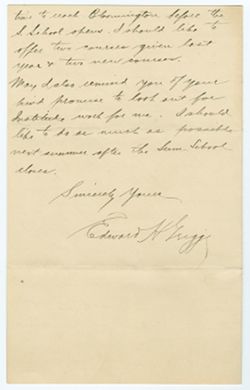 time to reach Bloomington before the
S. School opens. I should like to
offer two courses given last
year & two new courses.
May I also remind you of your
kind promise to look out for
Institute work for me. I should
like to do as much as possible
next summer after the Sum. School
closes.
Sincerely Yours
Edward H Griggs